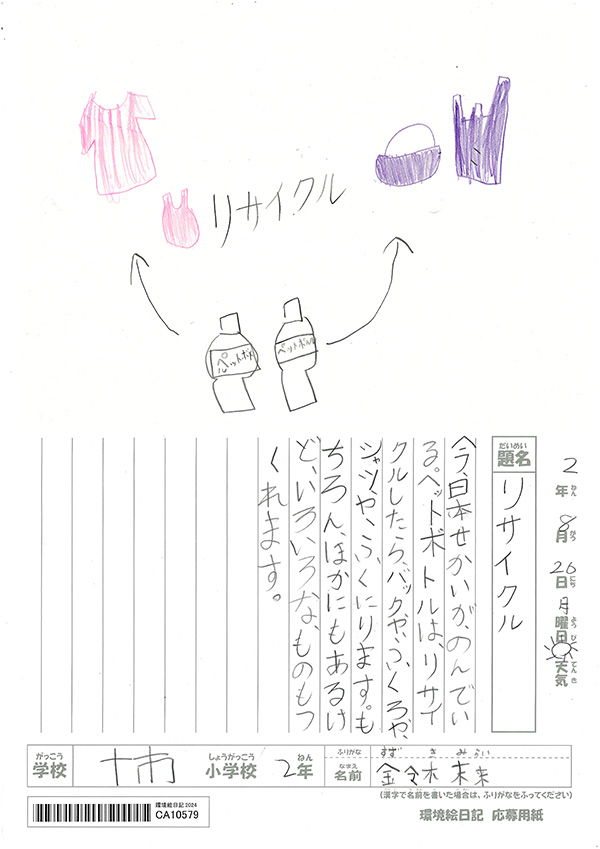 リサイクル
ペットボトル
ペットボトル
2年ねん8月がつ26日にち月曜日ようび天気てんき
だいめい
題名
リサイクル
今、日本せかいが、のんでい
るペットボトルは、リサイ
クルしたら、バックや、ふくろや、
シャツや、ふくにります。も
ちろん、ほかにもあるけ
ど、いろいろな、ものもつ
くれます。
がっこう
学校
十市
しょうがっこう
小学校
ねん
2年
ふりがな
すずきみらい
なまえ
名前
鈴木未来
(漢字で名前を書いた場合は、ふりがなをふってください)
環境絵日記2024
CA10579
環境絵日記 応募用紙